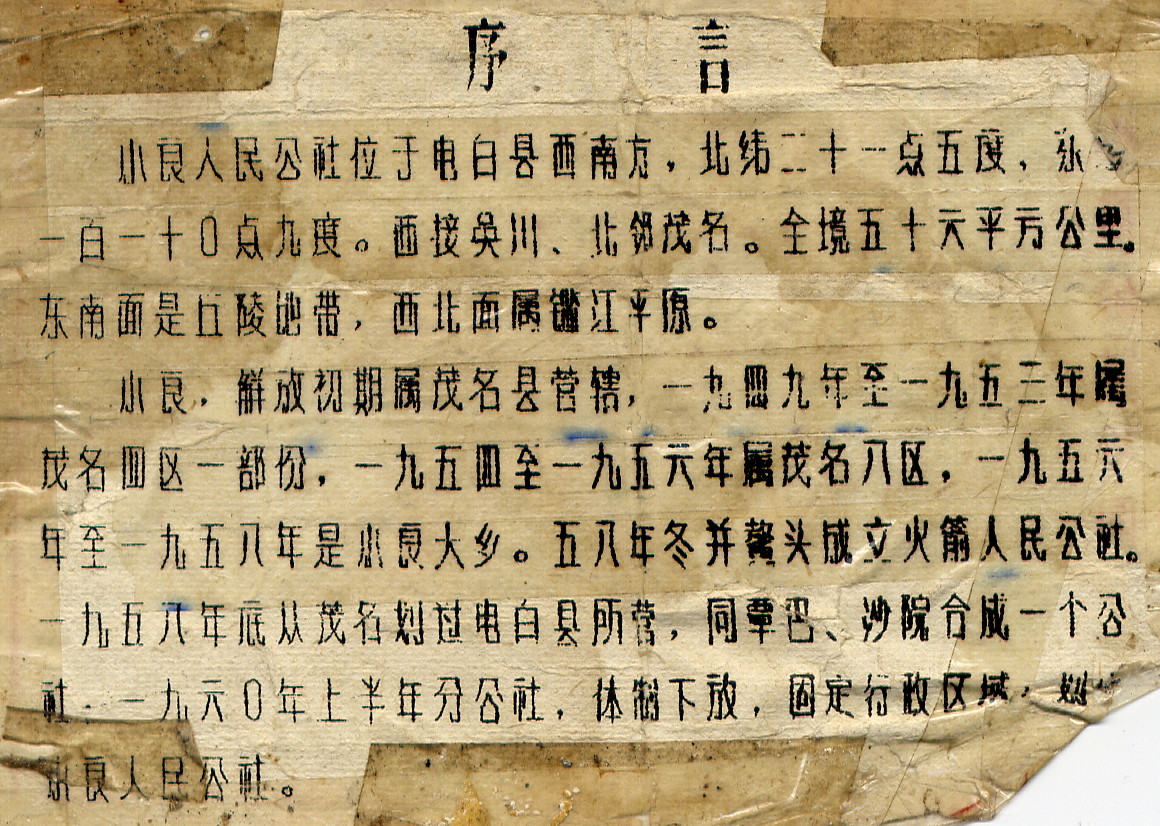 序言
小良人民公社位于电白县西南方，北纬二十一点五度，东
一百一十0点九度。西接吴川、北邻茂名。全境五十六平方公里。
东南面是丘陵地带，西北面属鑑江平原。
小良，解放初期属茂名县营辖，一九四九年至一九五三年属
茂名四区一部份，一九五四至一九五六年属茂名八区，一九五六
年至一九五八年是小良大乡。五八年冬并鳌头成立火箭人民公社。
一九五八年底从茂名划过电白县所营，同覃巴、沙院合成一个公
社．一九六0年上半年分公社，体制下放，固定行政区域，划
小良人民公社。